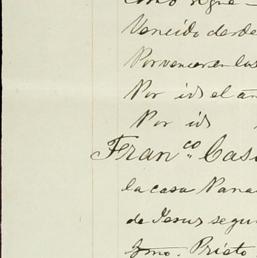 como sigue
Vencido desde
Por vencer en los
Por id el an
Por id
Fran.co Cas
la casa Pana
de Jesus segu
Ygno. Prieto